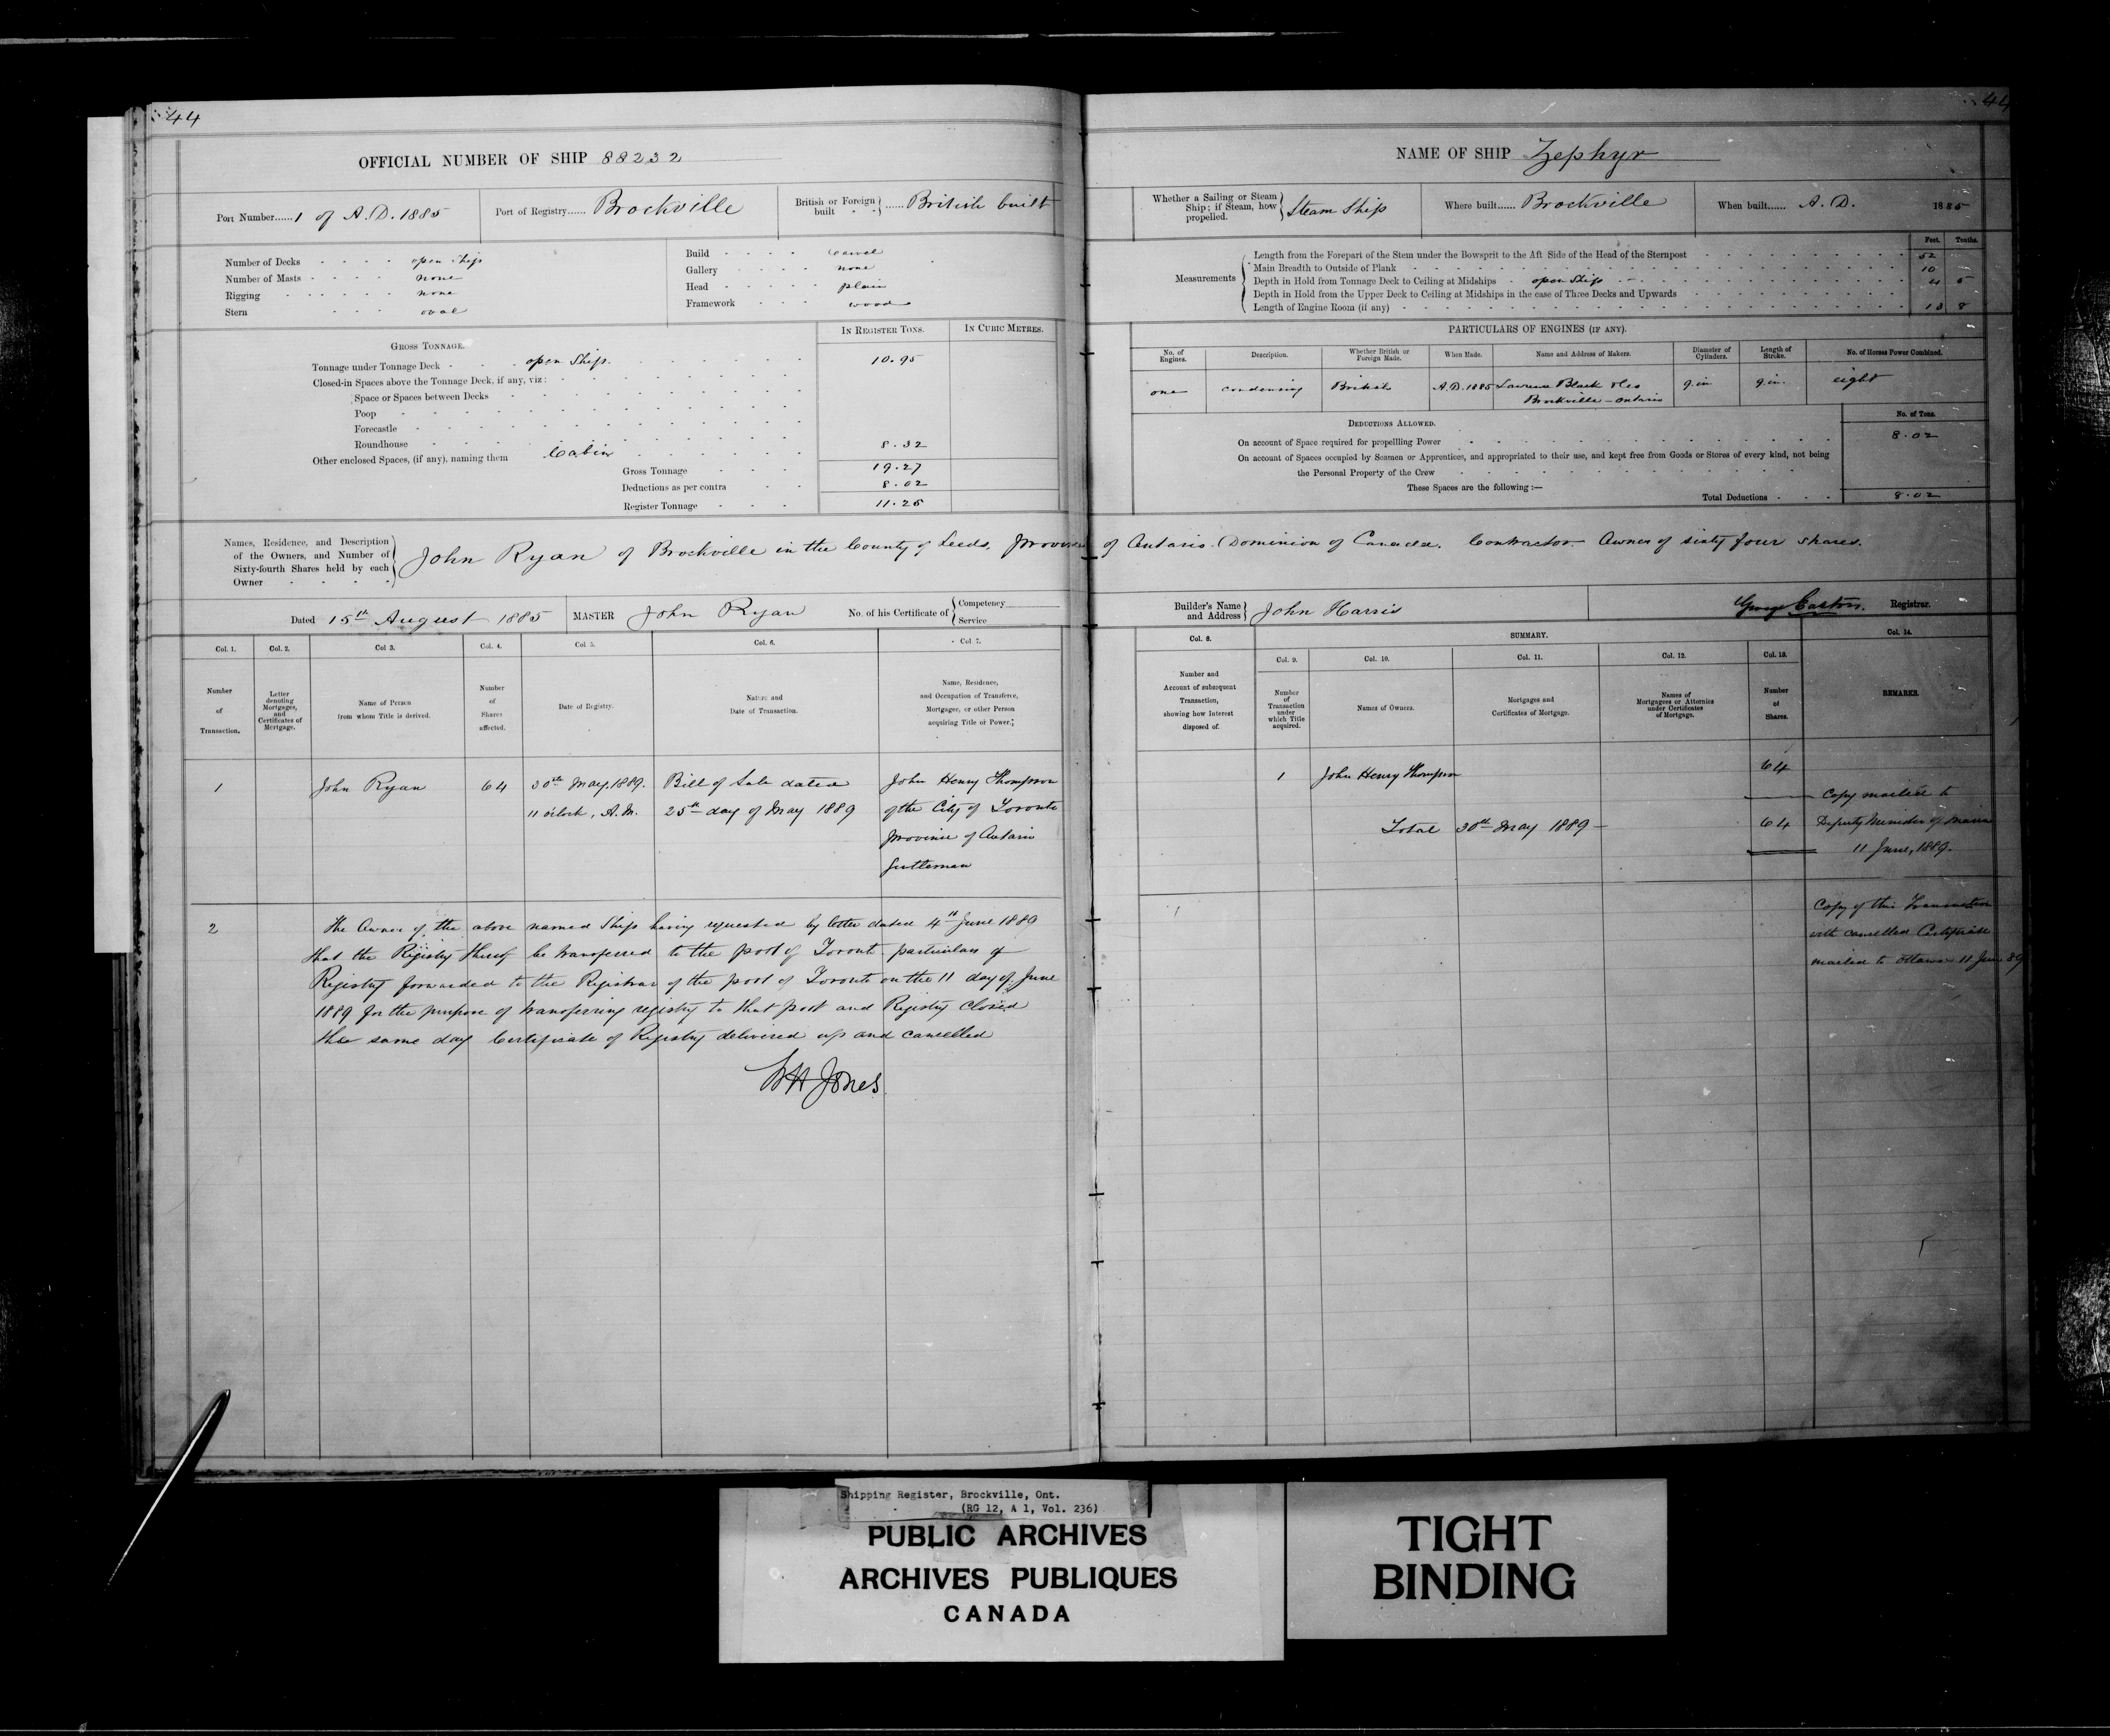 44
OFFICIAL NUMBER OF SHIP 88232
Port Number......1 of A.D. 1885
Port of Registry...... Brockville
British or Foreign built ...... British built
Number of Decks open ship
Number of Masts none
Rigging none
Stern oval
Build Carvel
Gallery none
Head plain
Framework wood
IN REGISTER TONS.
IN CUBIC METRES.
GROSS TONNAGE.
Tonnage under Tonnage Deck open Ship. 10.95
Closed-in Spaces above the Tonnage Deck, if any, viz:
Space or Spaces between Decks
Poop
Forecastle
Roundhouse
Other enclosed Spaces, (if any), naming them Cabin 8.32
Gross Tonnage 19.27
Deductions as per contra 8.02
Register Tonnage 11.25
Names, Residence, and Description of the Owners, and Number of Sixty-fourth Shares held by each Owner
John Ryan of Brockville in the County of Leeds. Province of Ontario. Dominion of Canada. Contractor. Owner of sixty four shares.
Dated 15th August 1885
MASTER John Ryan
No. of his Certificate of { Competency
Service
Col. 1.
Col. 2.
Col 3.
Col. 4.
Col 5.
Col. 6.
Col 7.
Number of Transaction.
Letter denoting Mortgages, and Certificates of Mortgage.
Name of Person from whom Title is derived.
Number of Shares affected.
Date of Registry.
Nature and Date of Transaction.
Name, Residence, and Occupation of Transferee, Mortgagee, or other Person acquiring Title or Power.
1
John Ryan
64
30th May. 1889.
11 o'clock, A.M.
Bill of Sale dated
25th day of May 1889
John Henry Thompson
of the City of Toronto
Province of Ontario
Gentleman
2
The Owner of the above named Ship having requested by letter dated 4th June 1889
that the Registry thereof be transferred to the port of Toronto particulars of
Registry forwarded to the Registrar of the port of Toronto on the 11 day of June
1889 for the purpose of transferring registry to that port and Registry closed
the same day Certificate of Registry delivered up and cancelled
WH Jones
44
NAME OF SHIP Zephyr
Whether a Sailing or Steam Ship; if Steam, how propelled. Steam Ship
Where built...... Brockville
When built...... A.D. 1885
Feet. Tenths.
Measurements
Length from the Forepart of the Stem under the Bowsprit to the Aft Side of the Head of the Sternpost 52
Main Breadth to Outside of Plank 10
Depth in Hold from Tonnage Deck to Ceiling at Midships open Ship 4 5
Depth in Hold from the Upper Deck to Ceiling at Midships in the case of Three Decks and Upwards
Length of Engine Room (if any) 13 8
PARTICULARS OF ENGINES (IF ANY).
No. of Engines.
Description.
Whether British or Foreign Made.
When Made.
Name and Address of Makers.
Diameter of Cylinders.
Length of Stroke.
No. of Horses Power Combined.
one
condensing
British
A.D. 1885
Lawrence Black & Co
Brockville - Ontario
9. in
9. in.
eight
DEDUCTIONS ALLOWED.
No. of Tons.
On account of Space required for propelling Power 8.02
On account of Spaces occupied by Seamen or Apprentices, and appropriated to their use, and kept free from Goods or Stores of every kind, not being
the Personal Property of the Crew
These Spaces are the following:—
Total Deductions 8.02
Builder's Name and Address John Harris
George Easton. Registrar.
SUMMARY.
Col. 8.
Col. 9.
Col. 10.
Col. 11.
Col. 12.
Col. 13.
Col. 14.
Number and Account of subsequent Transaction, showing how Interest disposed of.
Number of Transaction under which Title acquired.
Names of Owners.
Mortgages and Certificates of Mortgage.
Names of Mortgagees or Attornies under Certificates of Mortgage.
Number of Shares.
REMARKS.
1
John Henry Thompson
64
Total 30th May 1889 -
64
Copy mailed to
Deputy Minister of Marine
11 June, 1889.
Copy of this Transaction
with cancelled Certificate
mailed to Ottawa 11 June 89
Shipping Register, Brockville, Ont.
(RG 12, A 1, Vol. 236)
PUBLIC ARCHIVES
ARCHIVES PUBLIQUES
CANADA
TIGHT
BINDING